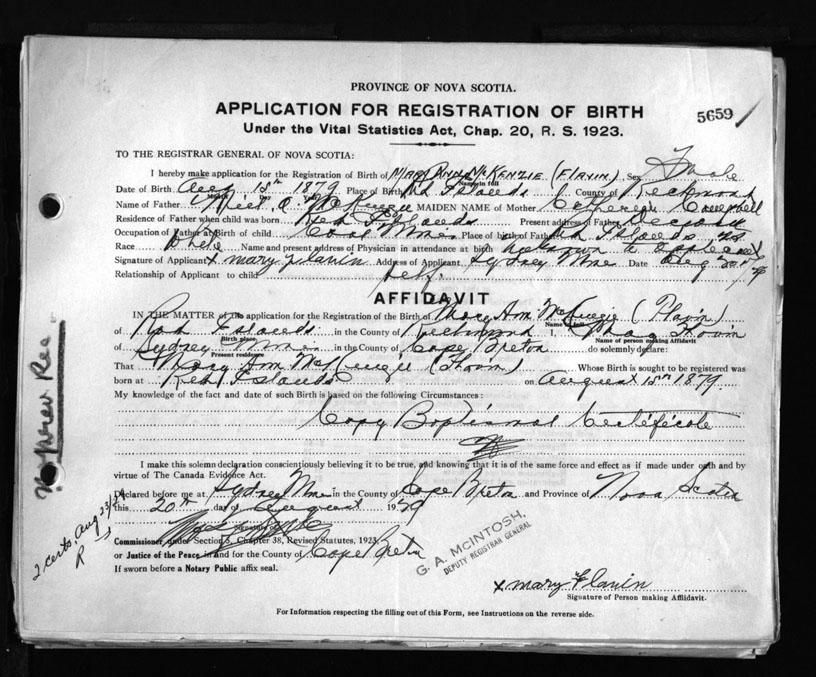 PROVINCE OF NOVA SCOTIA.
APPLICATION FOR REGISTRATION OF BIRTH
5659
Under the Vital Statistics Act, Chap. 20, R. S. 1923.
TO THE REGISTRAR GENERAL OF NOVA SCOTIA:
I hereby make application for the Registration of Birth of MARY ANN McKENZIE (FLAVIN) Sex Female
Name in full
Date of Birth Aug 15th 1879 Place of Birth Red Islands County of Richmond
Name of Father McKenzie MAIDEN NAME of Mother Catherine Campbell
Residence of Father when child was born Red Islands Present address of Father
Occupation of Father at Birth of child Coal Place of birth of Father Red Islands
Race White Name and present address of Physician in attendance at birth
Signature of Applicant x mary flavin Address of Applicant Sydney Mines Date Aug 20th
Relationship of Applicant to child self.
AFFIDAVIT
IN THE MATTER of the application for the Registration of the Birth of Mary Ann McKenzie (Flavin)
Name in full
of Red Islands in the County of Richmond I,
Birth place
Name of person making Affidavit
of Sydney Mines in the County of Cape Breton do solemnly declare:
Present residence
That Mary Ann McKenzie Whose Birth is sought to be registered was
born at Red Islands on August 15th 1879.
My knowledge of the fact and date of such Birth is based on the following Circumstances:
Copy Baptismal Certificate
I make this solemn declaration conscientiously believing it to be true, and knowing that it is of the same force and effect as if made under oath and by
virtue of The Canada Evidence Act.
Declared before me at Sydney Mines in the County of Cape Breton and Province of Nova Scotia
this 20th day of August 19
Commissioner under Section 3, Chapter 38, Revised Statutes, 1923
or Justice of the Peace in and for the County of Cape Breton
If sworn before a Notary Public affix seal.
G. A. McINTOSH,
DEPUTY REGISTRAR GENERAL
x mary Flavin
Signature of Person making Affidavit.
For Information respecting the filling out of this Form, see Instructions on the reverse side.
2 certs. Aug 23/
R